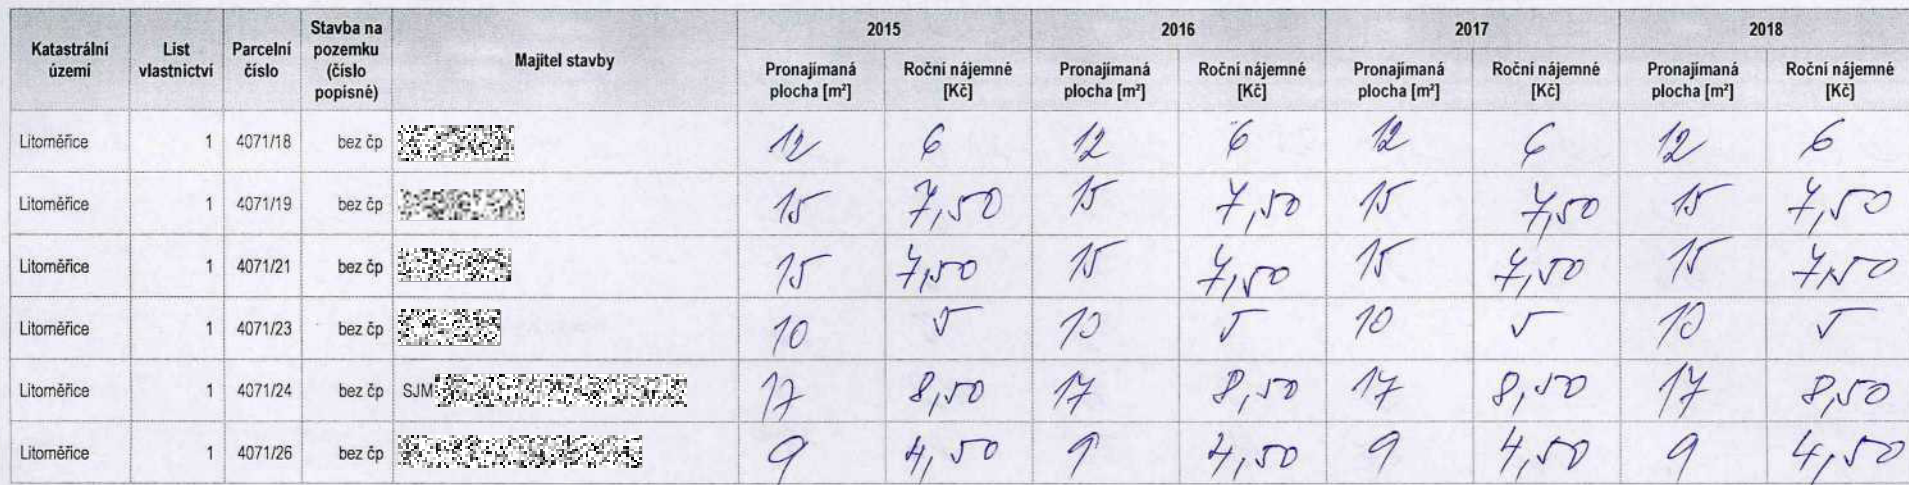 Katastrální území | List vlastnictví | Parcelní číslo | Stavba na pozemku (číslo popisné) | Majitel stavby | 2015 | 2016 | 2017 | 2018
Pronajímaná plocha [m²] | Roční nájemné [Kč] | Pronajímaná plocha [m²] | Roční nájemné [Kč] | Pronajímaná plocha [m²] | Roční nájemné [Kč] | Pronajímaná plocha [m²] | Roční nájemné [Kč]
Litoměřice | 1 | 4071/18 | bez čp | 12 | 6 | 12 | 6 | 12 | 6 | 12 | 6
Litoměřice | 1 | 4071/19 | bez čp | 15 | 7,50 | 15 | 7,50 | 15 | 7,50 | 15 | 7,50
Litoměřice | 1 | 4071/21 | bez čp | 15 | 7,50 | 15 | 7,50 | 15 | 7,50 | 15 | 7,50
Litoměřice | 1 | 4071/23 | bez čp | 10 | 5 | 10 | 5 | 10 | 5 | 10 | 5
Litoměřice | 1 | 4071/24 | bez čp | SJM | 17 | 8,50 | 17 | 8,50 | 17 | 8,50 | 17 | 8,50
Litoměřice | 1 | 4071/26 | bez čp | 9 | 4,50 | 9 | 4,50 | 9 | 4,50 | 9 | 4,50